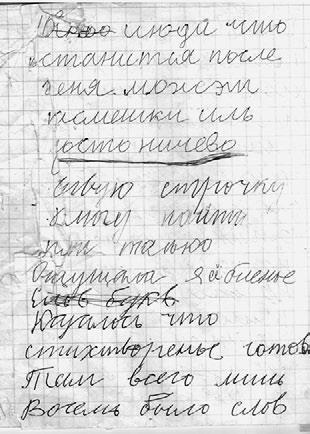 иноди что
станится после
меня можэт
усмешки иль
росто ничево
строчку
Смогу найти
только
Ощущала я биенье
Слов букв
Казалось что
стихотворенье готов
Там всего лишь
Восемь было слов